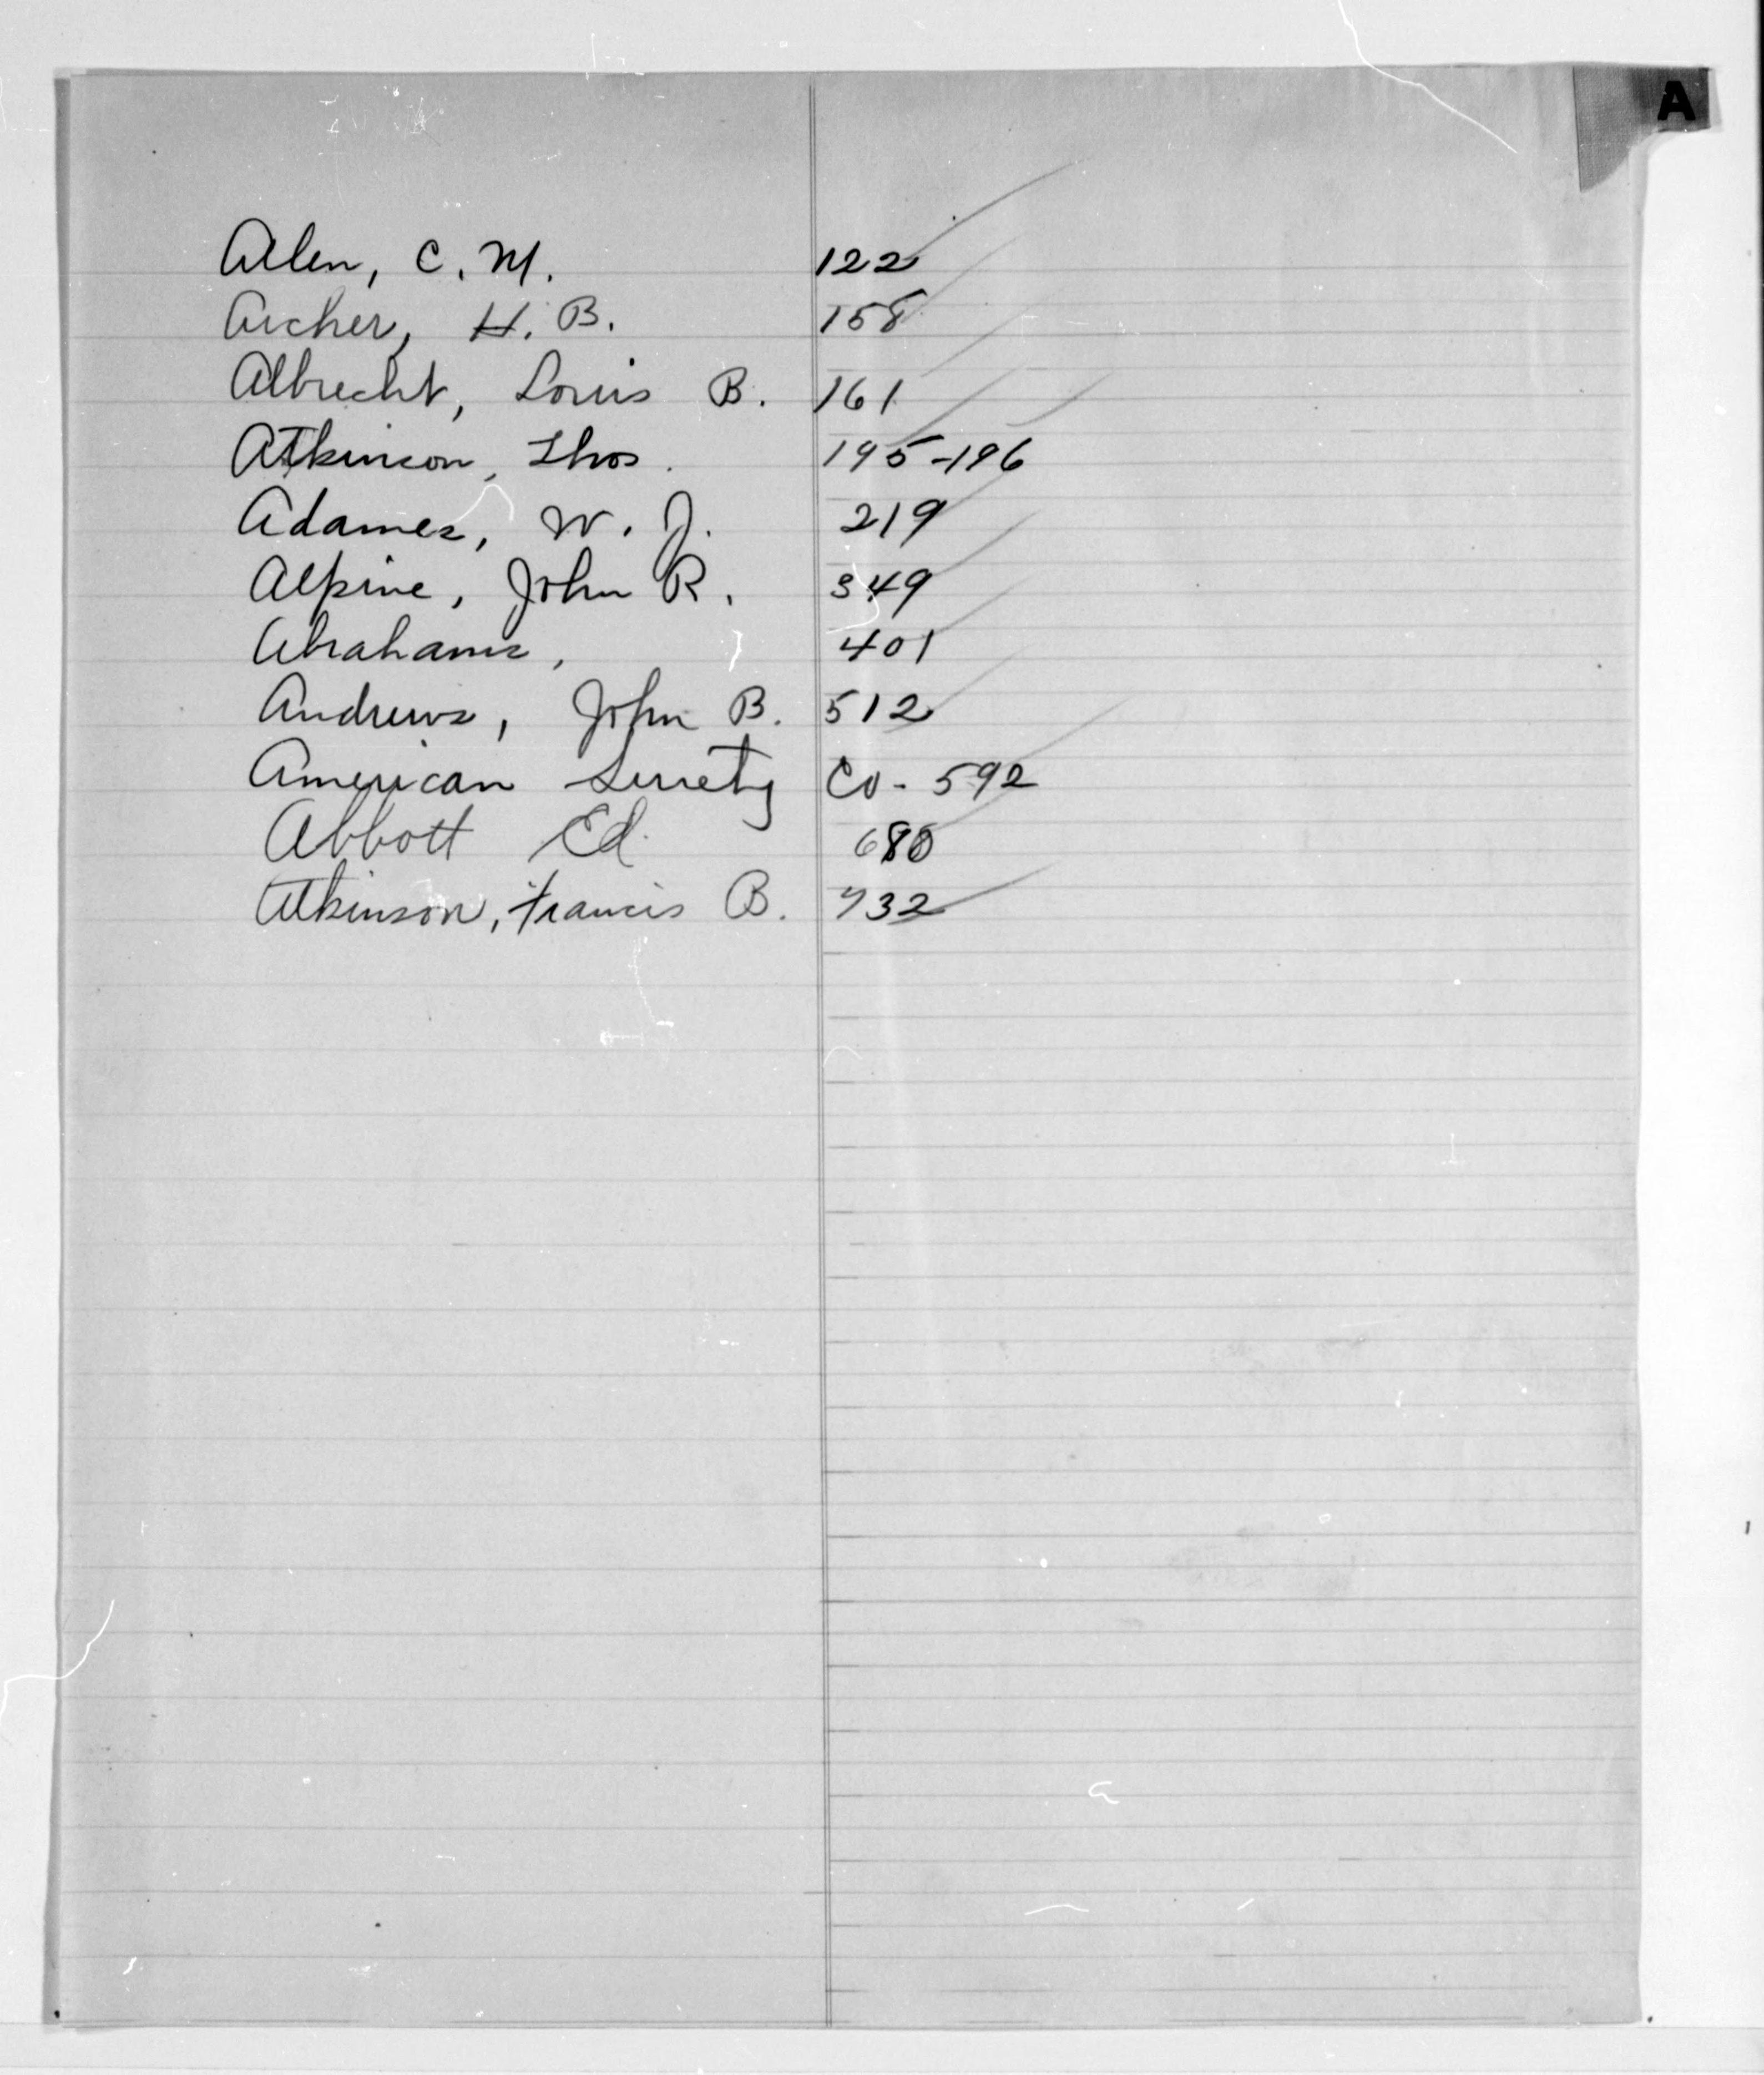 A
Allen, C. M. 122
Archer, H. B. 158
Albrecht, Louis B. 161
Atkinson, Thos. 195-196
Adames, W. J. 219
Alpine, John R. 349
Abrahams, 401
Andrews, John B. 512
American Surety Co - 592
Abbott Ed. 680
Atkinson, Francis B. 732